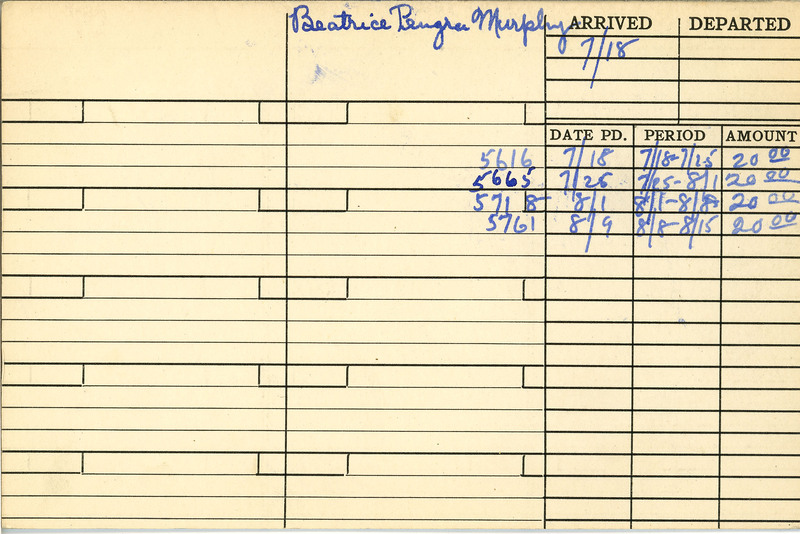 Beatrice Pengra Murphy ARRIVED DEPARTED
7/18
DATE PD. PERIOD AMOUNT
5616 7/18 7/18-7/25 20 00
5665 7/25 7/25-8/1 20 00
5718 8/1 8/1-8/8 20 00
5761 8/9 8/8-8/15 20 00